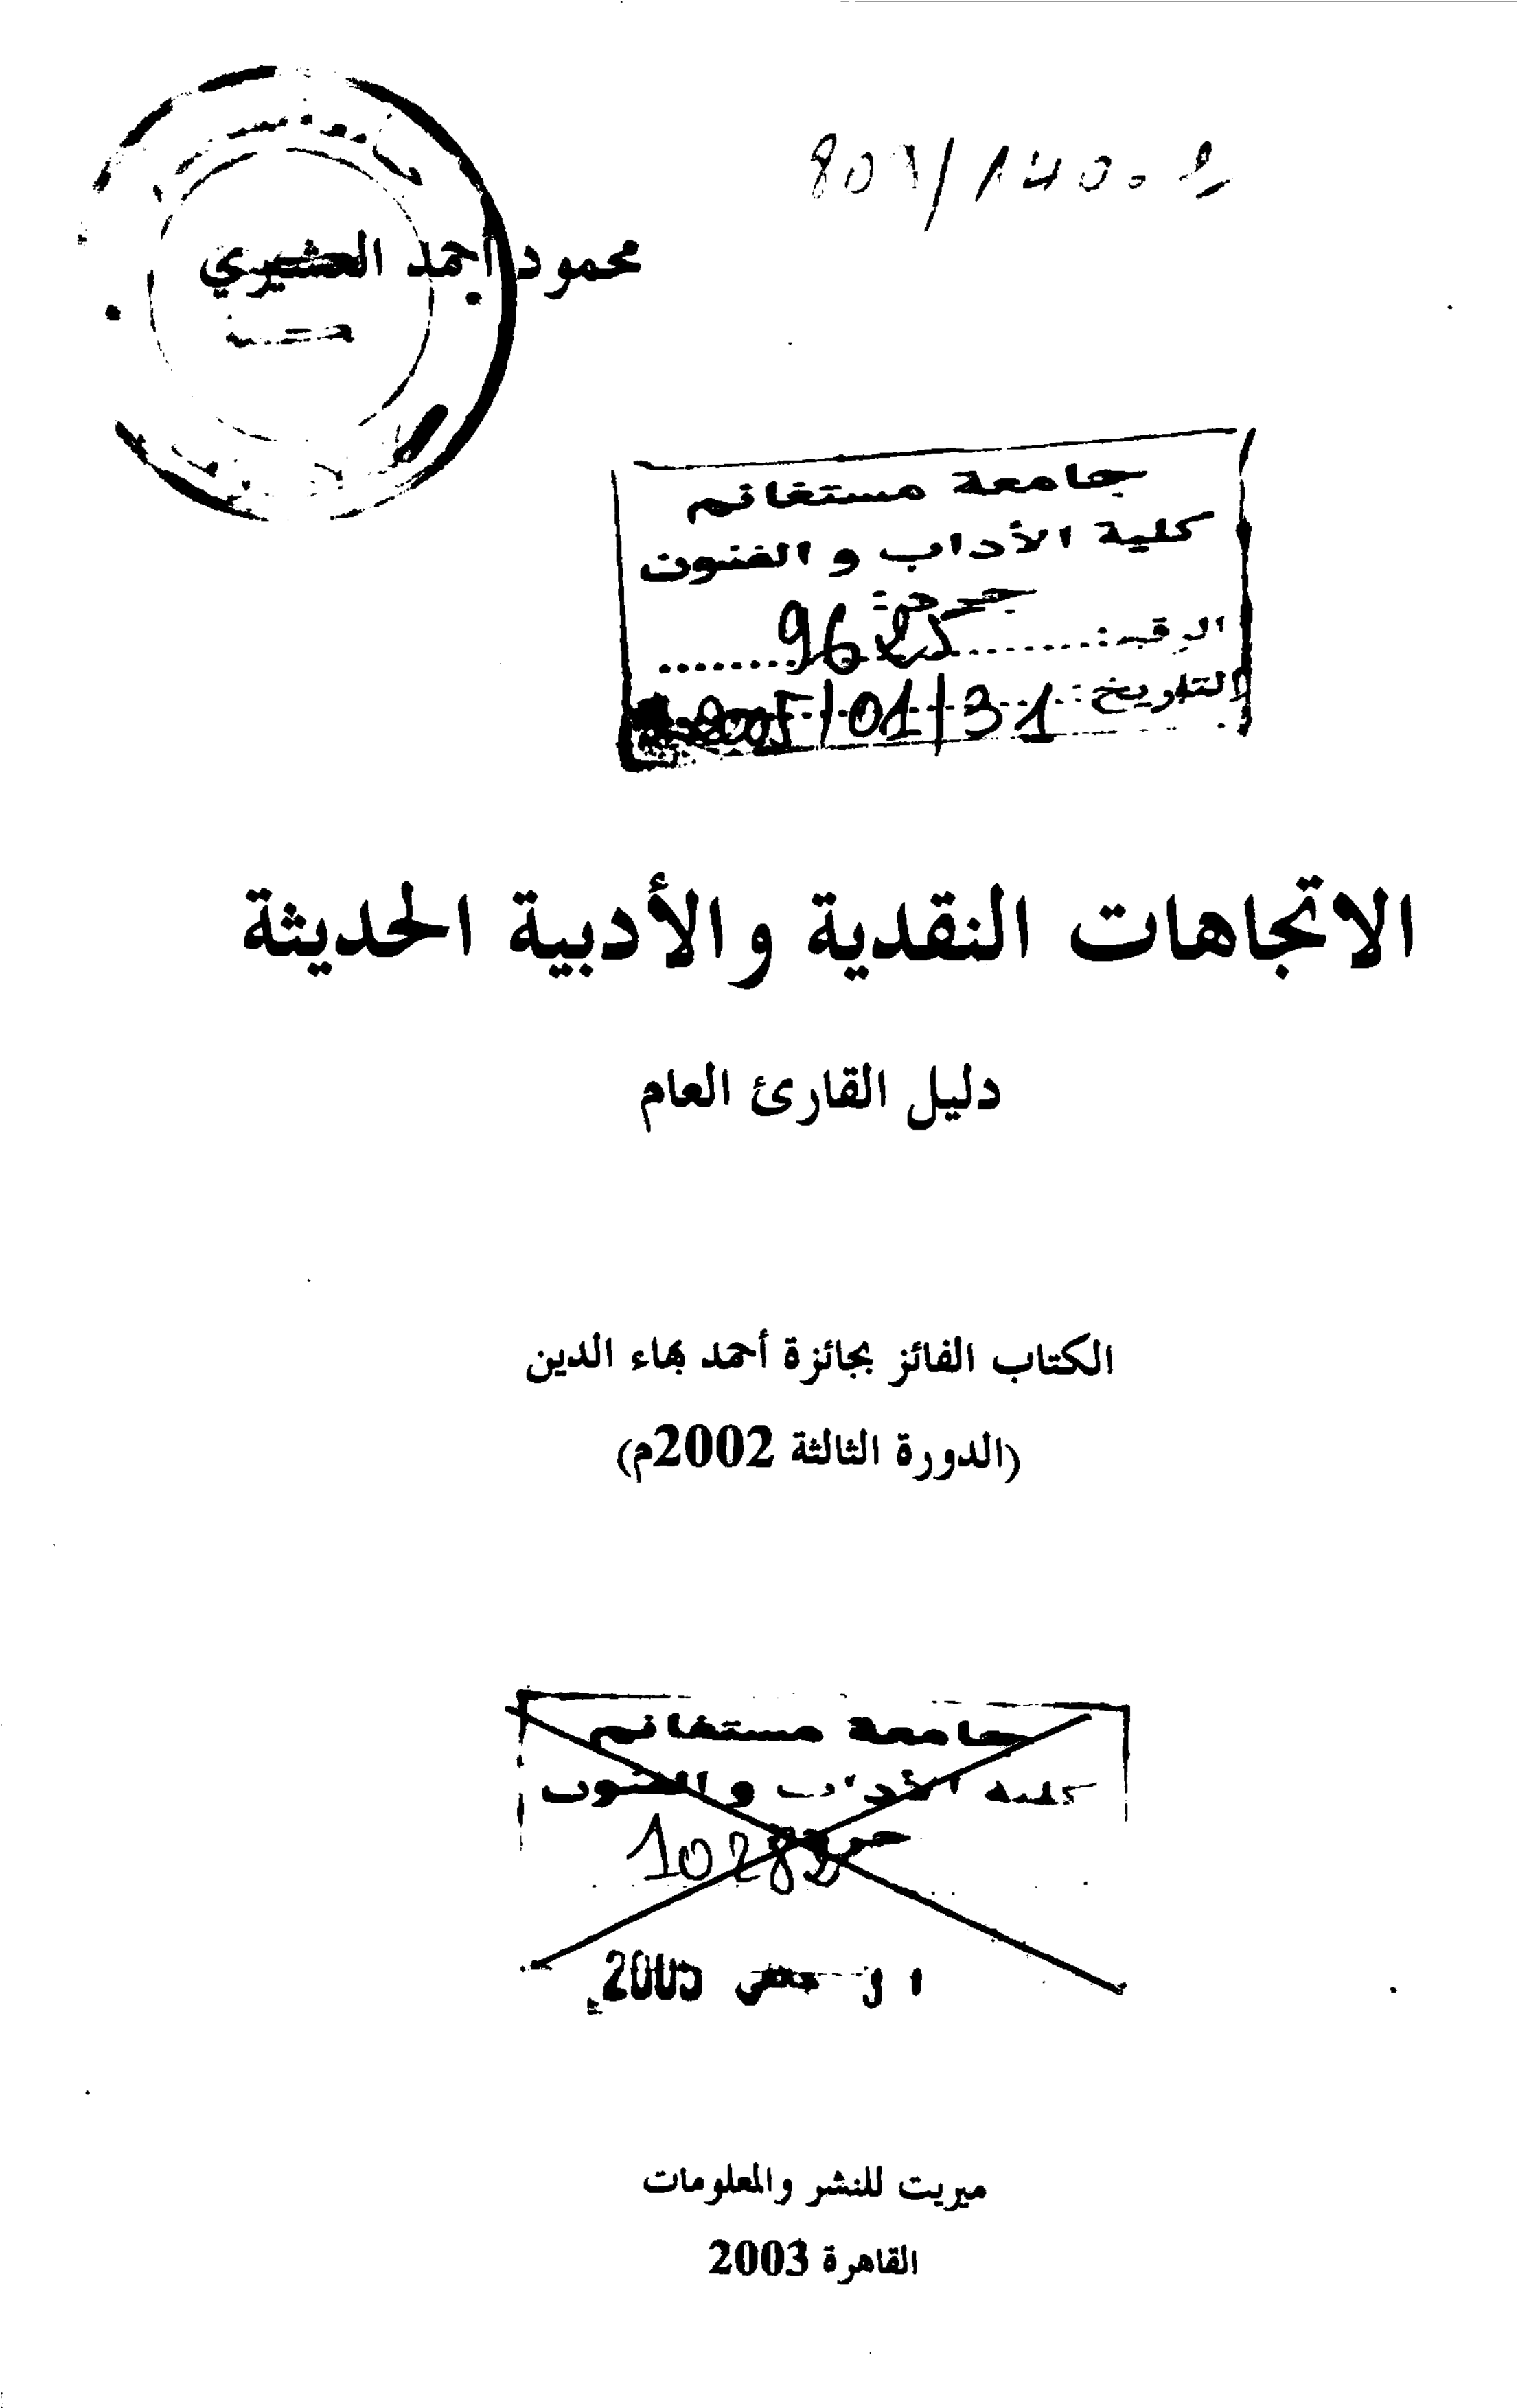 محمود أحمد العشيري
جامعة مستغانم
كلية الأداب و الفنون
جرد
الرقم:
التاريخ: 2005/01/31
الاتجاهات النقدية والأدبية الحديثة
دليل القارئ العام
الكتاب الفائز بجائزة أحمد بهاء الدين
(الدورة الثالثة 2002م)
جامعة مستغانم
كلية الأداب والفنون
جرد
2005
ميريت للنشر والمعلومات
القاهرة 2003